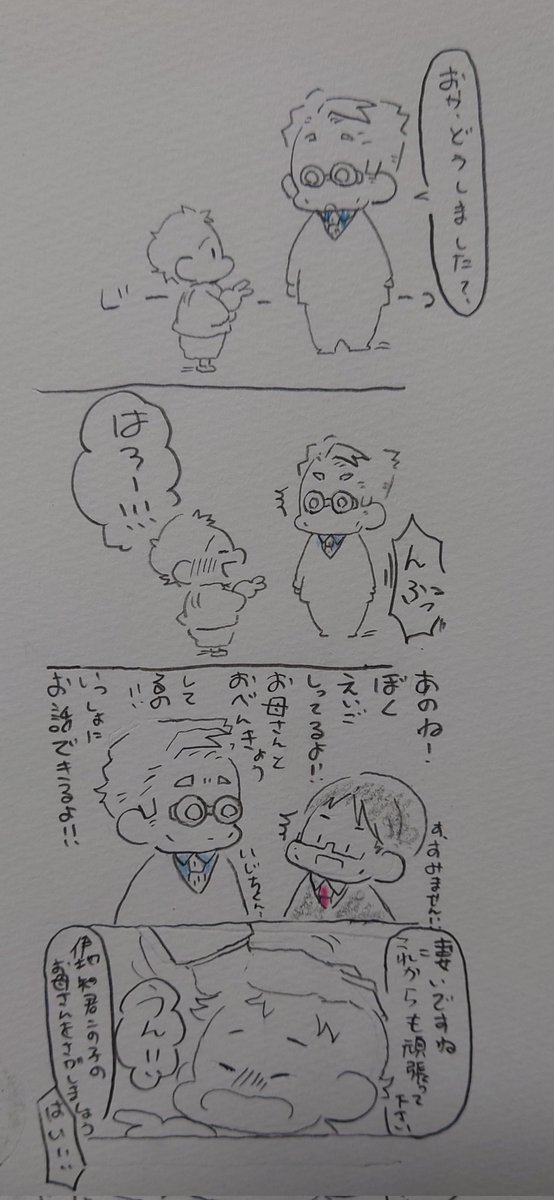 おや、どうしました?
じーーーっ
はろー!!!
んふっ
あのね!
ぼく
えいご
しってるよ!!
お母さんと
おべんきょう
して
るの
!!
いっしょに
お話できるよ!!
す、すみません…
いじちくん…
凄いですね
これからも頑張って
下さい
うん!!
伊地知君この子の
お母さんをさがしましょう
はい!!